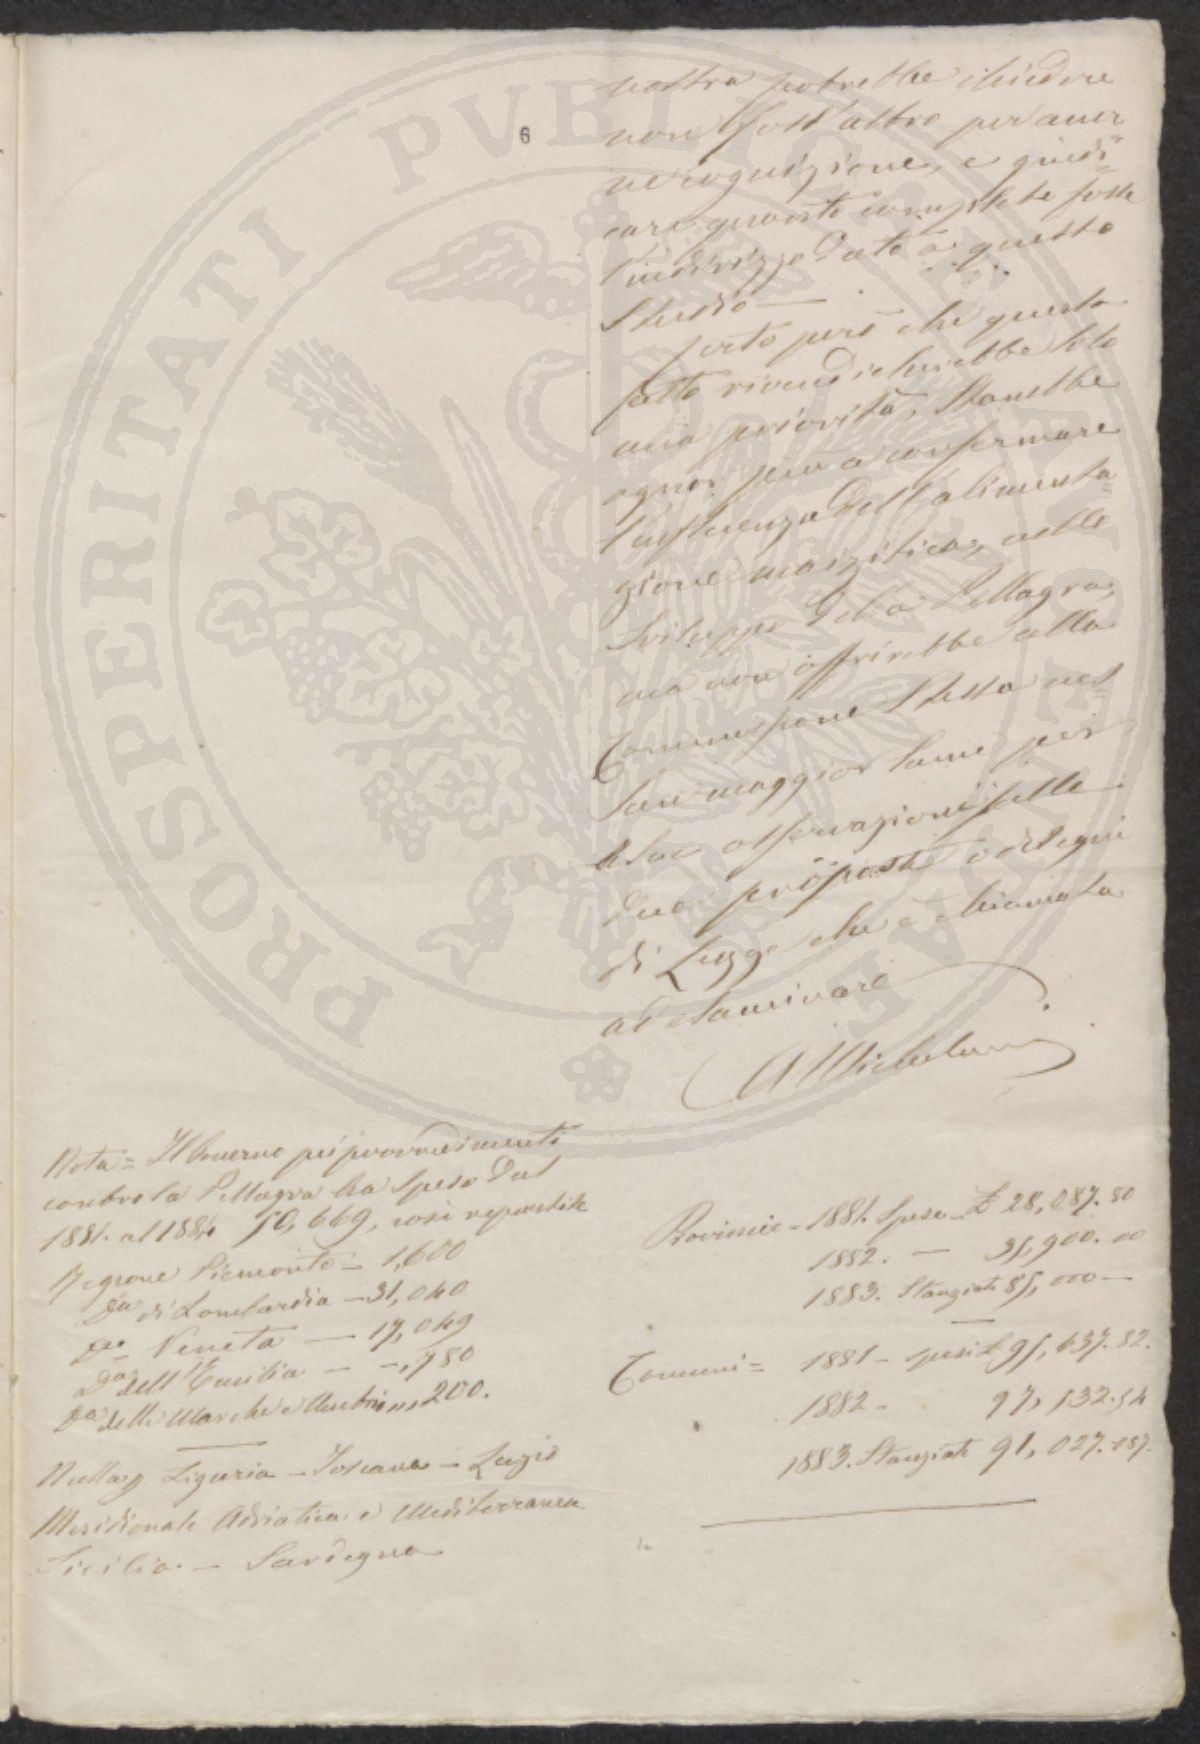 6
nostra potrebbe chiedere
non foss'altro per aver
ne cognizione, e giudi=
care quanto completo fosse
l'indirizzo dato a questo
Studio —
Certo però che questo
fatto rivendicherebbe solo
una priorità, starebbe
ognor più a confermare
l'influenza dell'alimenta=
zione maizitica, nello
sviluppo della Pellagra,
ma non offrirebbe alla
Commissione stessa nes=
sun maggior lume per
le sue osservazioni sulle
due proposte o disegni
di Legge che è chiamata
ad esaminare
A Michelini
Nota = Il Governo pei provvedimenti
contro la Pellagra ha speso dal
1881. al 1884 50,669, così repartite
Regione Piemonte — 1,600
Da di Lombardia — 31,040
Da Veneta — 17,049
Da dell'Emilia — —,780
Da delle Marche e Umbria ,,,200.
Nulla Liguria — Toscana — Lazio
Meridionale Adriatica e Mediterranea
Sicilia. — Sardegna
Provincie = 1881. Spese £ 28,087.80
1882. — 35,900.00
1883. Stanziate 85,000 —
Comuni = 1881 — spesi £ 95,637.82.
1882 - 97,532.54
1883. Stanziate 91,027.187.